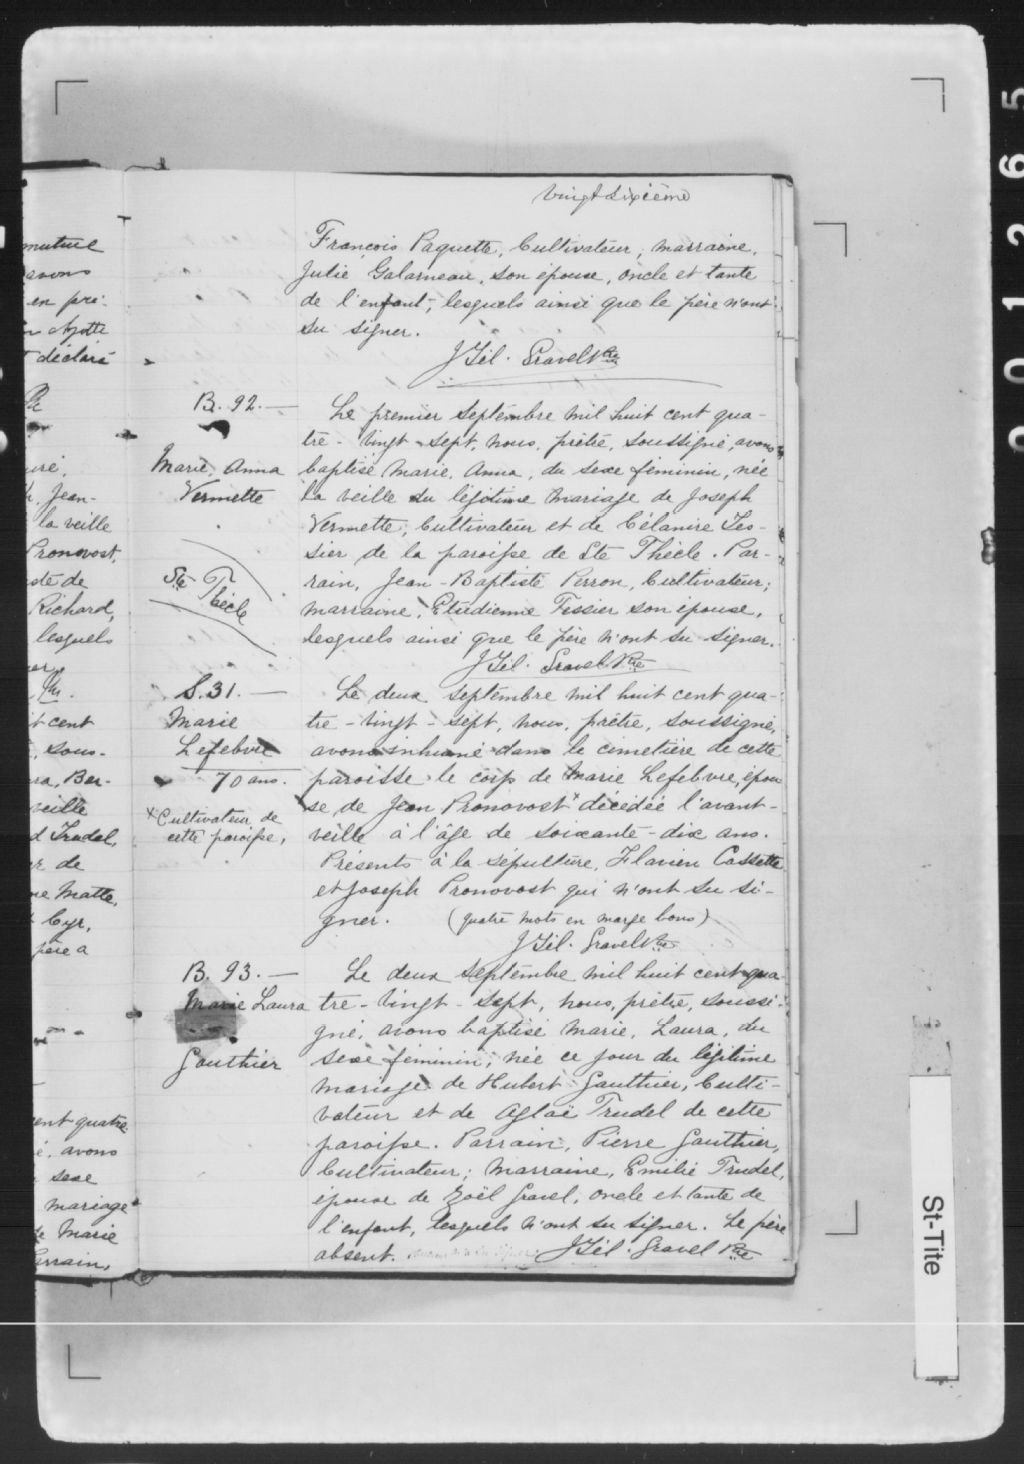 vingt sixième
François Paquette, Cultivateur, marraine,
Julie Galarneau, son épouse, oncle et tante
de l'enfant, lesquels ainsi que le père n'ont
su signer.
J Gél. Gravel Ptre
B. 92.—
Marie, Anna
Vermette
Ste Thècle
Le premier Septembre mil huit cent qua-
tre-vingt-sept, nous, prêtre, soussigné, avons
baptisé Marie, Anna, du sexe féminin, née
la veille du légitime mariage de Joseph
Vermette, Cultivateur et de Célanire Tes-
sier de la paroisse de Ste Thècle. Par-
rain, Jean-Baptiste Perron, Cultivateur;
marraine, Etudienne Tessier son épouse,
lesquels ainsi que le père n'ont su signer.
J Gél. Gravel Ptre
S. 31.—
Marie
Lefebvre
70 ans.
x Cultivateur de
cette paroisse,
Le deux Septembre mil huit cent qua-
tre-vingt-sept, nous, prêtre, soussigné,
avons inhumé dans le cimetière de cette
paroisse le corps de Marie Lefebvre, épou
se de Jean Pronovost x décédée l'avant-
veille à l'âge de soixante-dix ans.
Présents à la sépulture, Flavien Cossette
et Joseph Pronovost qui n'ont su si-
gner. (quatre mots en marge bons)
J Gél. Gravel Ptre
B. 93.—
Marie Laura
Gauthier
Le deux Septembre mil huit cent qua-
tre-vingt-sept, nous, prêtre, soussi-
gné, avons baptisé Marie, Laura, du
sexe féminin, née ce jour du légitime
mariage de Hubert Gauthier, Culti-
vateur et de Aglaé Trudel de cette
paroisse. Parrain, Pierre Gauthier,
Cultivateur; Marraine, Emilie Trudel,
épouse de Zoël Gravel, oncle et tante de
l'enfant, lesquels n'ont su signer. Le père
absent. J Gél. Gravel Ptre
mutuel
avons
en pré-
déclaré
Jean-
la veille
Pronovost,
de
Richard,
lesquels
cent
sous-
Ber-
veille
Trudel,
de
Matte,
Cyr,
père a
quatre
avons
sexe
mariage
Marie
St-Tite
001265